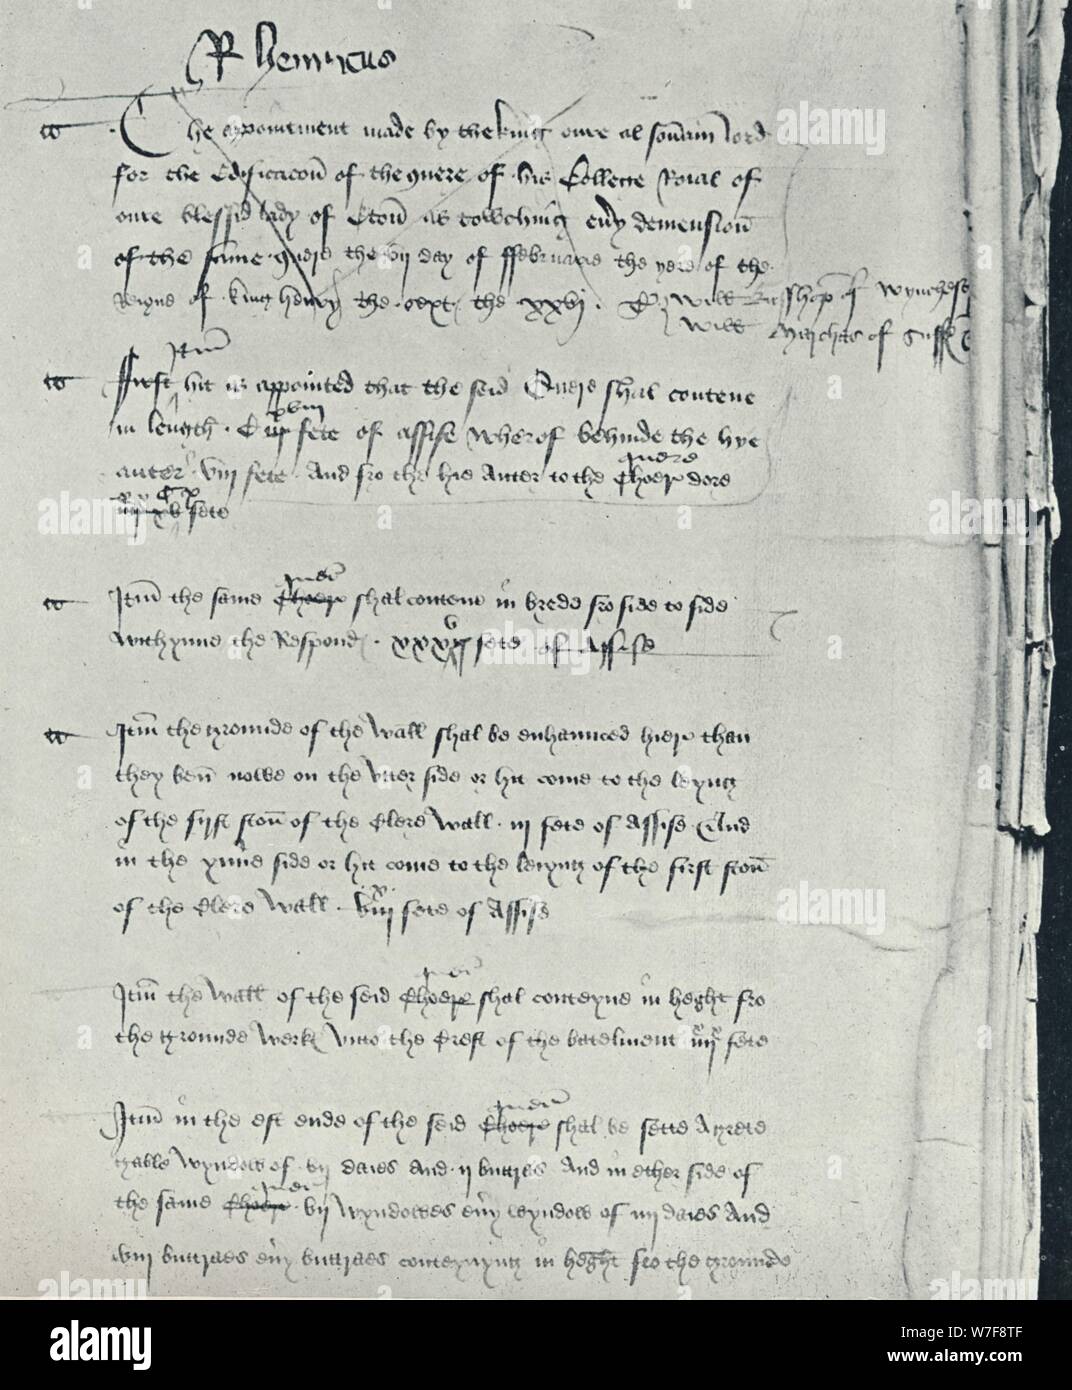 R henricus
The appointment made by the king oure al sou̅ain lord
for the Edificacoū of the quere of his College Roial of
oure blessid lady of Etoū as towching eu̅y demensioū
of the same quere the vij day of ffebruarie the yere of the
Reigne of king henry the sext the xxvj.
Will Busshop of Wynchest
Will Marches of Suff
Itm̅
First hit is appointed that the seid Quere shal contene
in length. C fete of assise wherof behinde the hye
auter. viij fete. And fro the hie Auter to the quere Choer dore
xv fete
quer
Itm̅ the same Choer shal contene in brede fro side to side
withynne the Respond. fete of Assise
Itm̅ the grounde of the Wall shal be enhaunced hier than
they ben̅ nowe on the vtter side or hit come to the leyng
of the first stoū of the Clere Wall. iij fete of Assise. And
in the ynne side or hit come to the leiyng of the first stoū
of the Clere Wall. fete of Assise
quer
Itm̅ the Wall of the seid Choer shal conteyne in heght fro
the grounde werk vnto the Crest of the batelment fete
quer
Itm̅ in the est ende of the seid Choer shal be sette A grete
gable Wyndow of. vij daies And. ij buttras And in ether side of
quer
the same Choer. vij wyndowes eu̅y wyndow of iiij daies And
viij buttraes eu̅y buttraes conteynyng in heght fro the grounde
alamy
alamy stock photo
W7F8TF
www.alamy.com